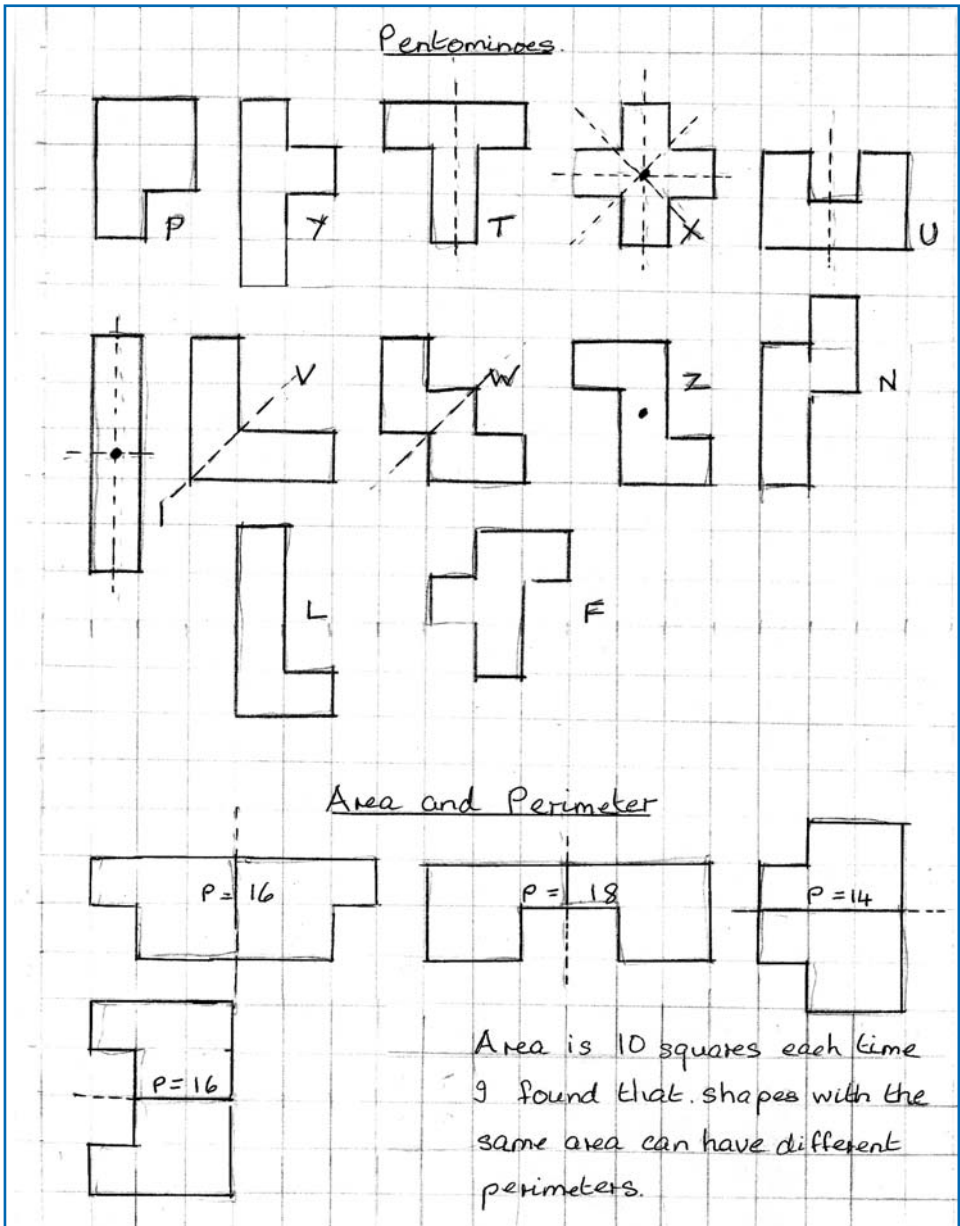 Pentominoes.
P
Y
T
X
U
V
W
Z
N
I
L
F
Area and Perimeter
P = 16
P = 18
P = 14
P = 16
Area is 10 squares each time
I found that. shapes with the
same area can have different
perimeters.